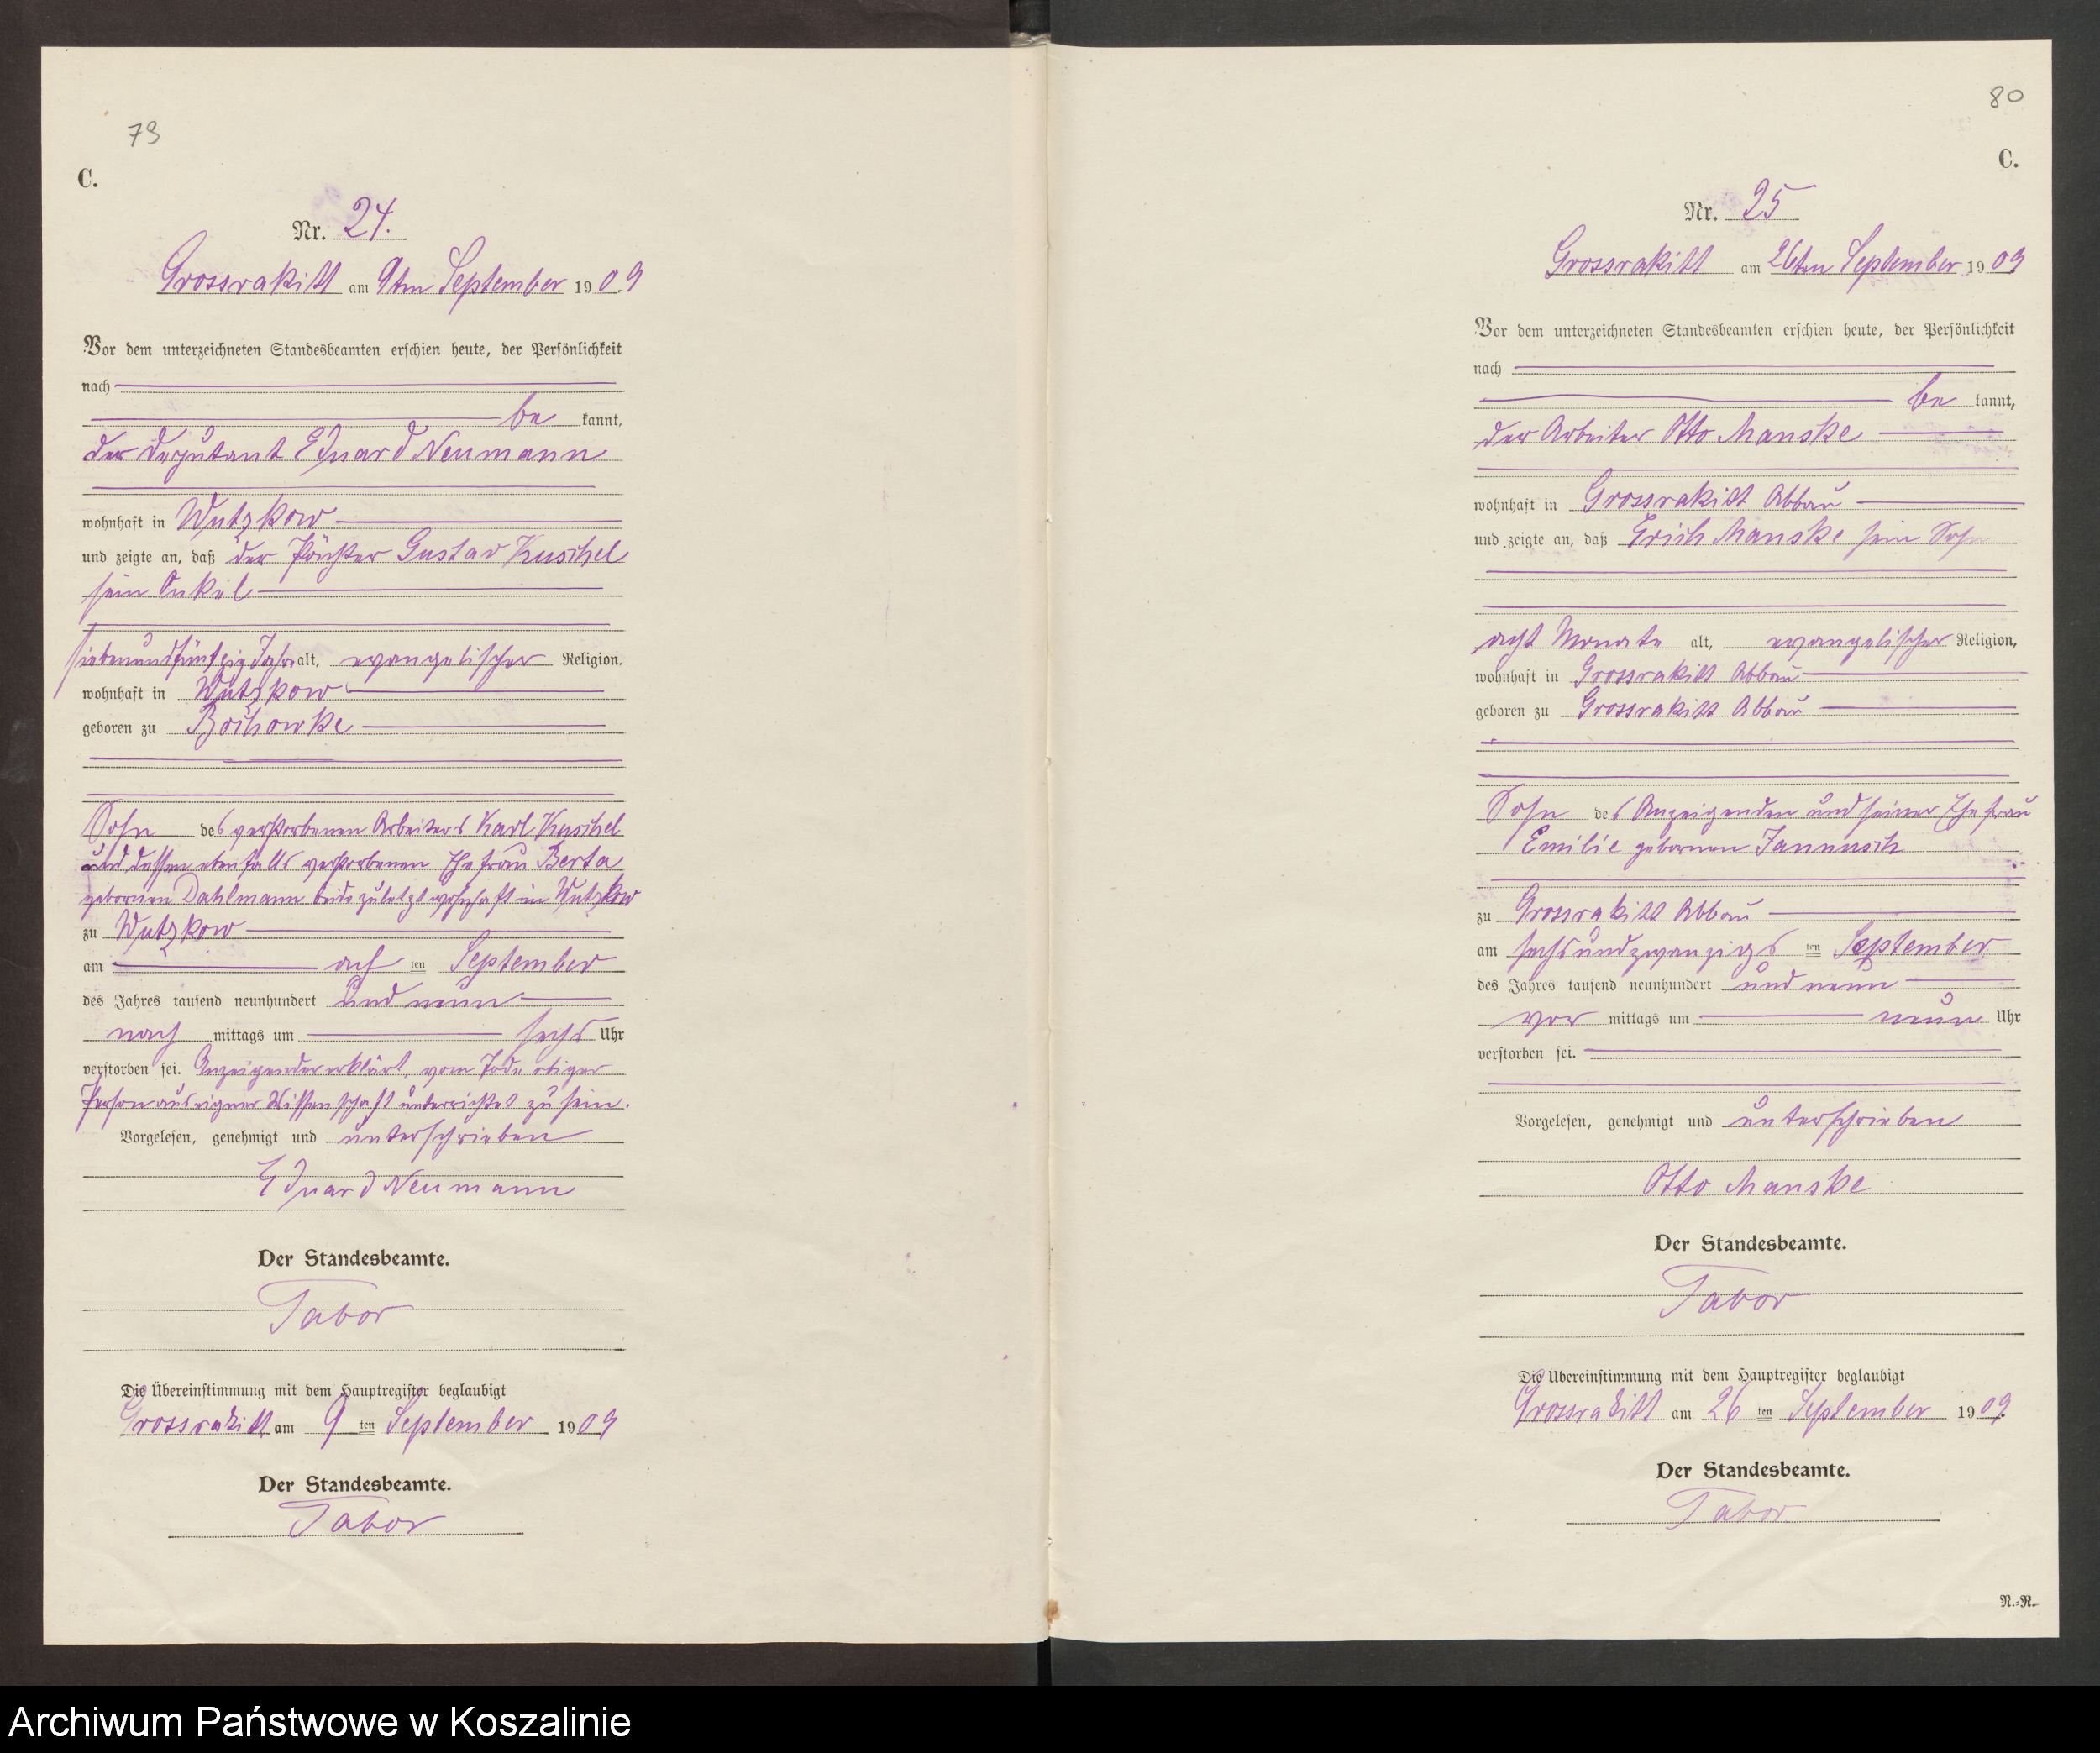 79
C.
Nr. 24.
Grossrakitt am 9ten September 1909
Vor dem unterzeichneten Standesbeamten erschien heute, der Persönlichkeit
nach
be kannt,
der Deputant Eduard Neumann
wohnhaft in Wutzkow
und zeigte an, daß der Gustav Kuschel
sein Onkel
siebenundfünfzig Jahre alt, evangelischer Religion,
wohnhaft in Wutzkow
geboren zu Bochowke
Sohn des verstorbenen Arbeiters Karl Kuschel
und dessen ebenfalls verstorbenen Ehefrau Berta
gebornen Dahlmann beide zuletzt wohnhaft in Wutzkow
zu Wutzkow
am acht ten September
des Jahres tausend neunhundert und neun
nach mittags um sechs Uhr
verstorben sei. Anzeigender erklärt, vom Tode obiger
Person aus eigner Wissenschaft unterrichtet zu sein.
Vorgelesen, genehmigt und unterschrieben
Eduard Neumann
Der Standesbeamte.
Tabor
Die Übereinstimmung mit dem Hauptregister beglaubigt
Grossrakitt am 9 ten September 1909
Der Standesbeamte.
Tabor
80
C.
Nr. 25
Grossrakitt am 26ten September 1909
Vor dem unterzeichneten Standesbeamten erschien heute, der Persönlichkeit
nach
be kannt,
der Arbeiter Otto Manske
wohnhaft in Grossrakitt Abbau
und zeigte an, daß Erich Manske sein Sohn
acht Monate alt, evangelischer Religion,
wohnhaft in Grossrakitt Abbau
geboren zu Grossrakitt Abbau
Sohn des Anzeigenden und seiner Ehefrau
Emilie gebornen Jannusch
zu Grossrakitt Abbau
am sechsundzwanzigs ten September
des Jahres tausend neunhundert und neun
vor mittags um neun Uhr
verstorben sei.
Vorgelesen, genehmigt und unterschrieben
Otto Manske
Der Standesbeamte.
Tabor
Die Übereinstimmung mit dem Hauptregister beglaubigt
Grossrakitt am 26 ten September 1909.
Der Standesbeamte.
Tabor
N.-R.
Archiwum Państwowe w Koszalinie